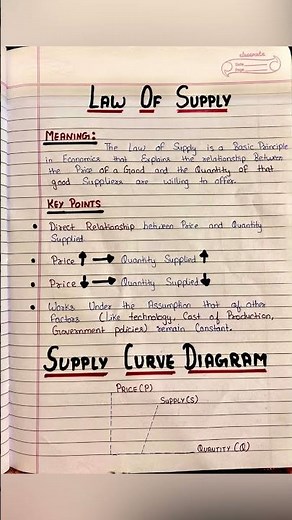 Date
Page
LAW OF SUPPLY
MEANING:
The Law of Supply is a Basic Principle
in Economics that Explains the relationship Between
the Price of a Good and the Quantity of that
good Suppliers are willing to offer.
KEY POINTS
• Direct Relationship between Price and Quantity
Supplied
• Price ↑ → Quantity Supplied ↑
• Price ↓ → Quantity Supplied ↓
• Works Under the Assumption that of other
Factors (Like technology, Cost of Production,
Government policies) remain Constant.
SUPPLY CURVE DIAGRAM
PRICE (P)
SUPPLY (S)
QUANTITY (Q)